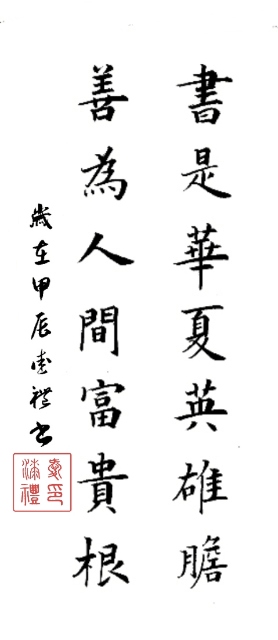 書是華夏英雄膽
善為人間富貴根
歲在甲辰春禮書